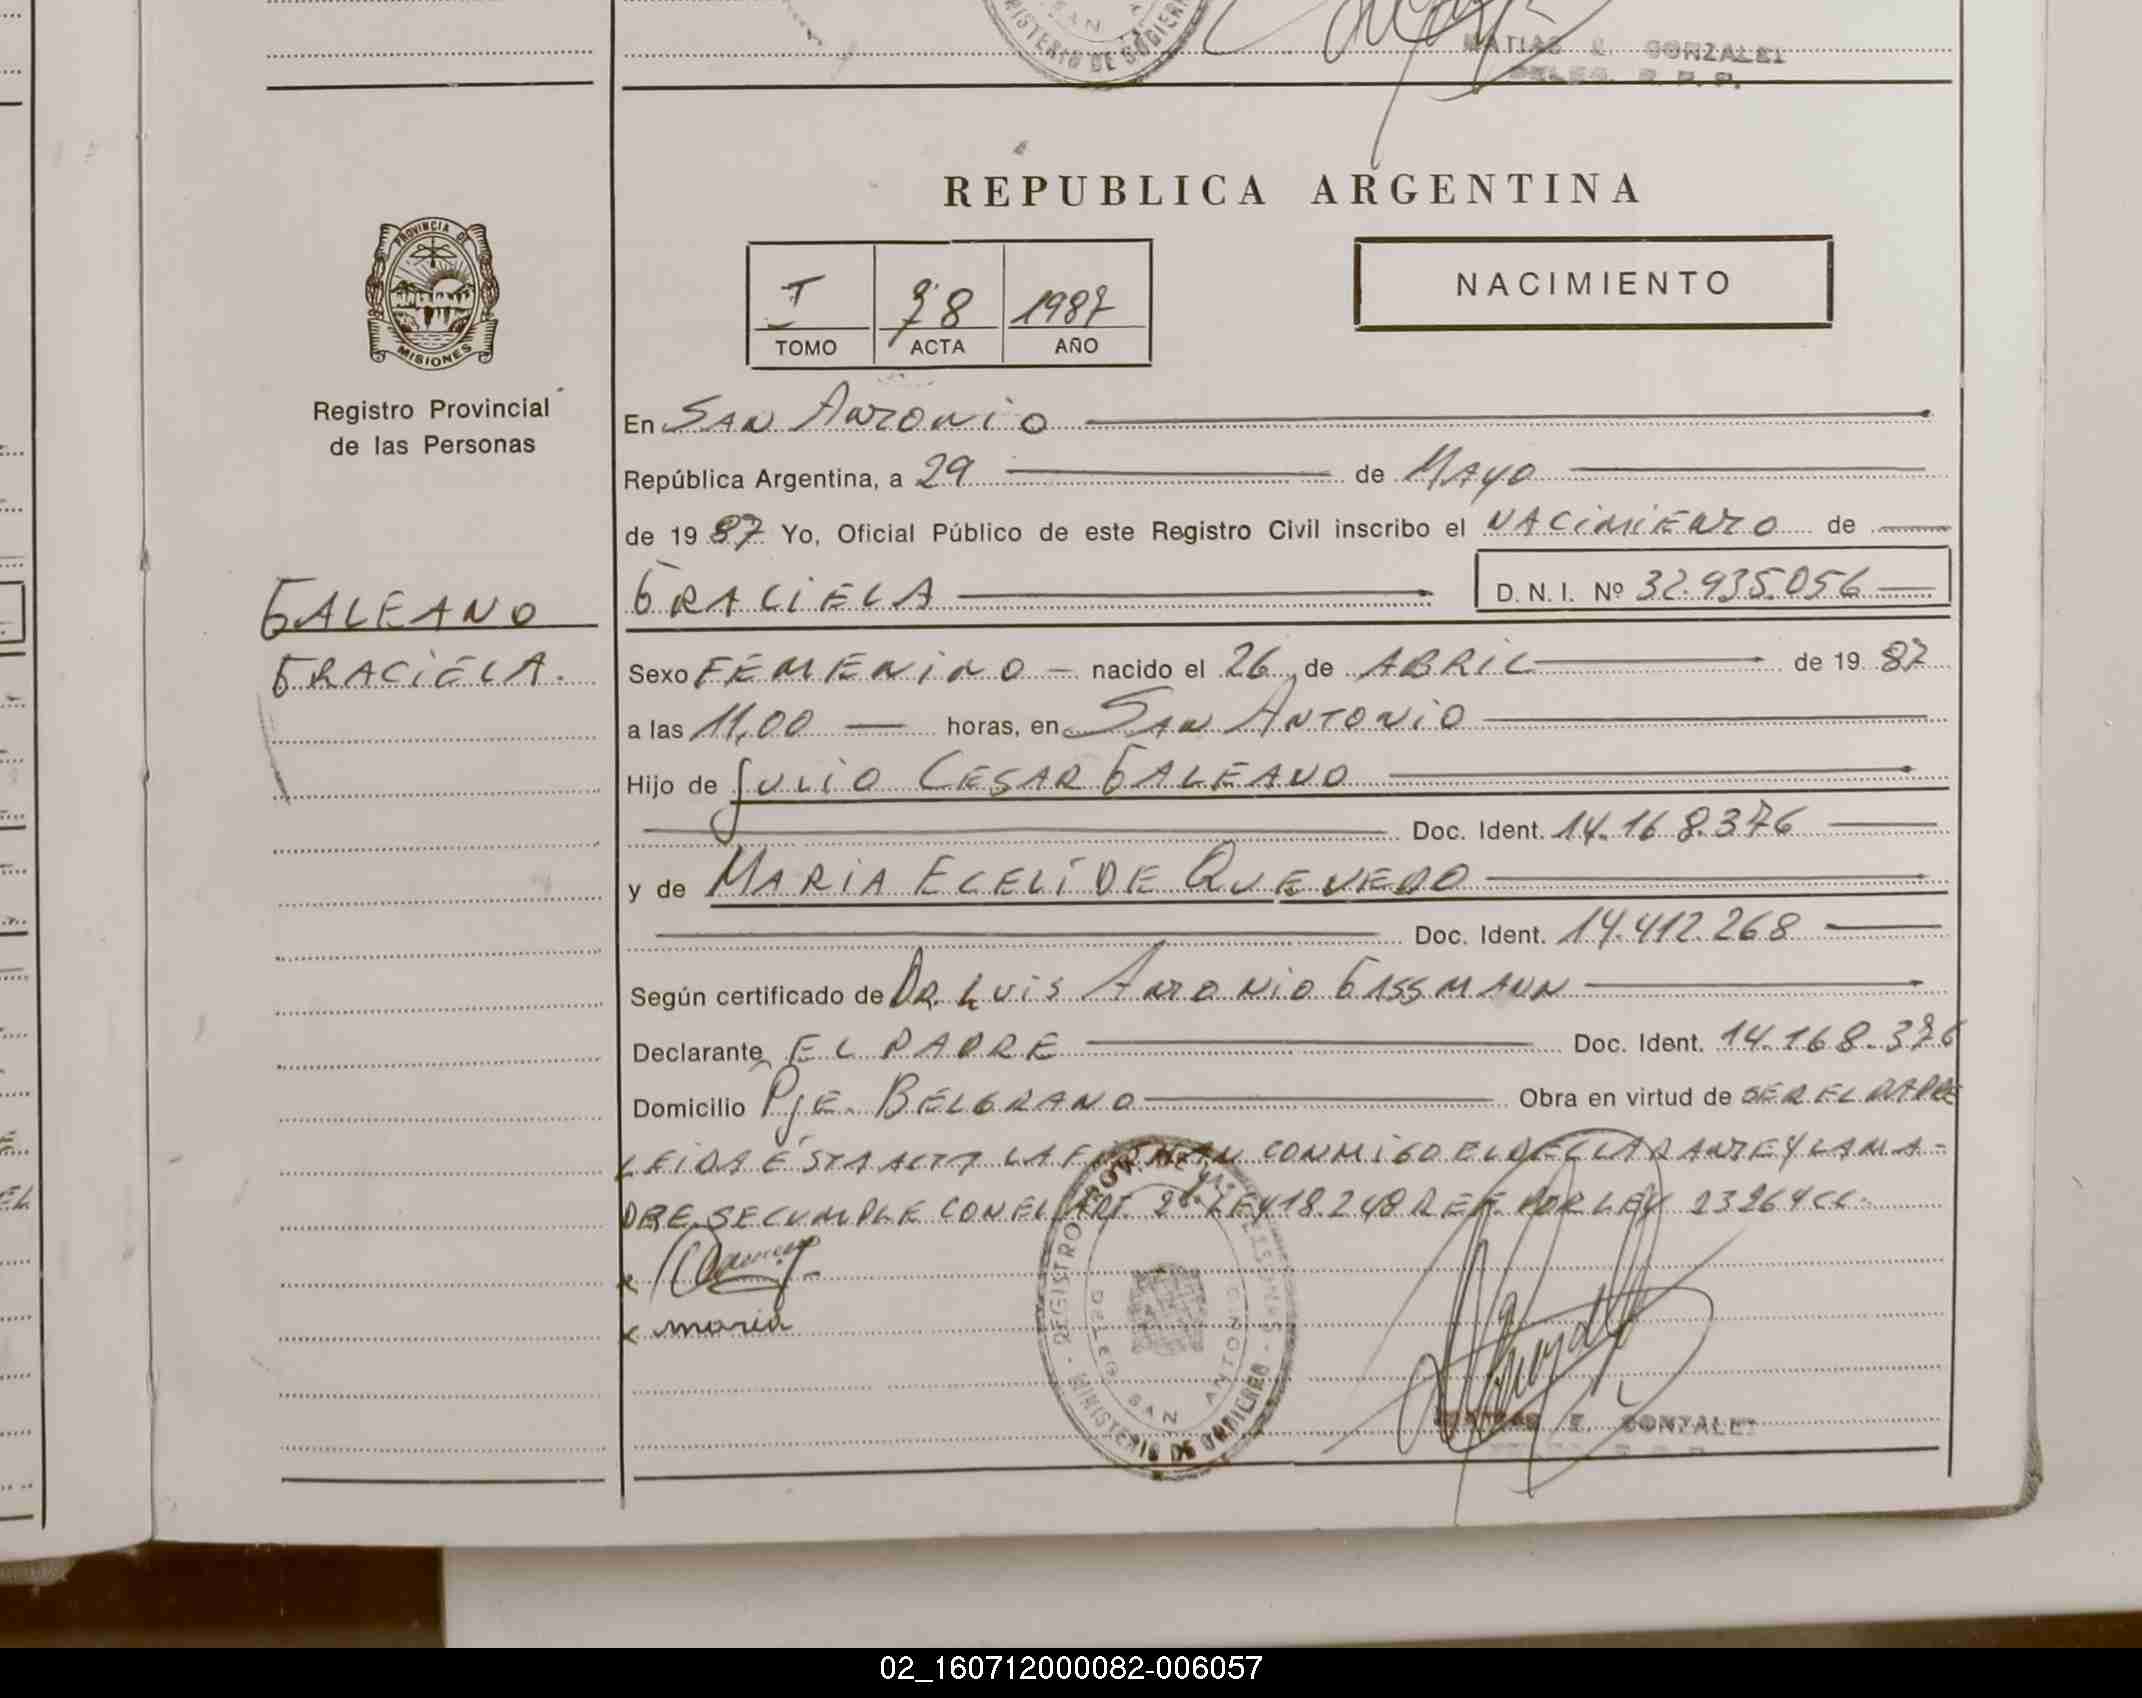 MINISTERIO DE GOBIERNO
SAN
MATIAS E. GONZALEZ
R. P. P.
REPUBLICA ARGENTINA
PROVINCIA DE
MISIONES
Registro Provincial
de las Personas
I 78 1987
TOMO ACTA AÑO
NACIMIENTO
En SAN ANTONIO
República Argentina, a 29 de MAYO
de 19 87 Yo, Oficial Público de este Registro Civil inscribo el NACIMIENTO de
GRACIELA D. N. I. Nº 32.935.056
GALEANO
GRACIELA.
Sexo FEMENINO nacido el 26 de ABRIL de 19 87
a las 11,00 horas, en SAN ANTONIO
Hijo de JULIO CESAR GALEANO
Doc. Ident. 14.168.376
y de MARIA ECELÍ DE QUEVEDO
Doc. Ident. 14.412.268
Según certificado de DR. LUIS ANTONIO GASSMANN
Declarante EL PADRE Doc. Ident. 14.168.376
Domicilio PJE. BELGRANO Obra en virtud de SER EL PADRE
LEIDA ÉSTA ACTA LA FIRMAN CONMIGO EL DECLARANTE Y LA MA-
DRE. SE CUMPLE CON EL ART. 2º LEY 18.248 REF. POR LEY 23264 CC.
x
x maria
REGISTRO PROV. MISIONES
SAN ANTONIO
MINISTERIO DE GOBIERNO
MATIAS E. GONZALEZ
02_160712000082-006057